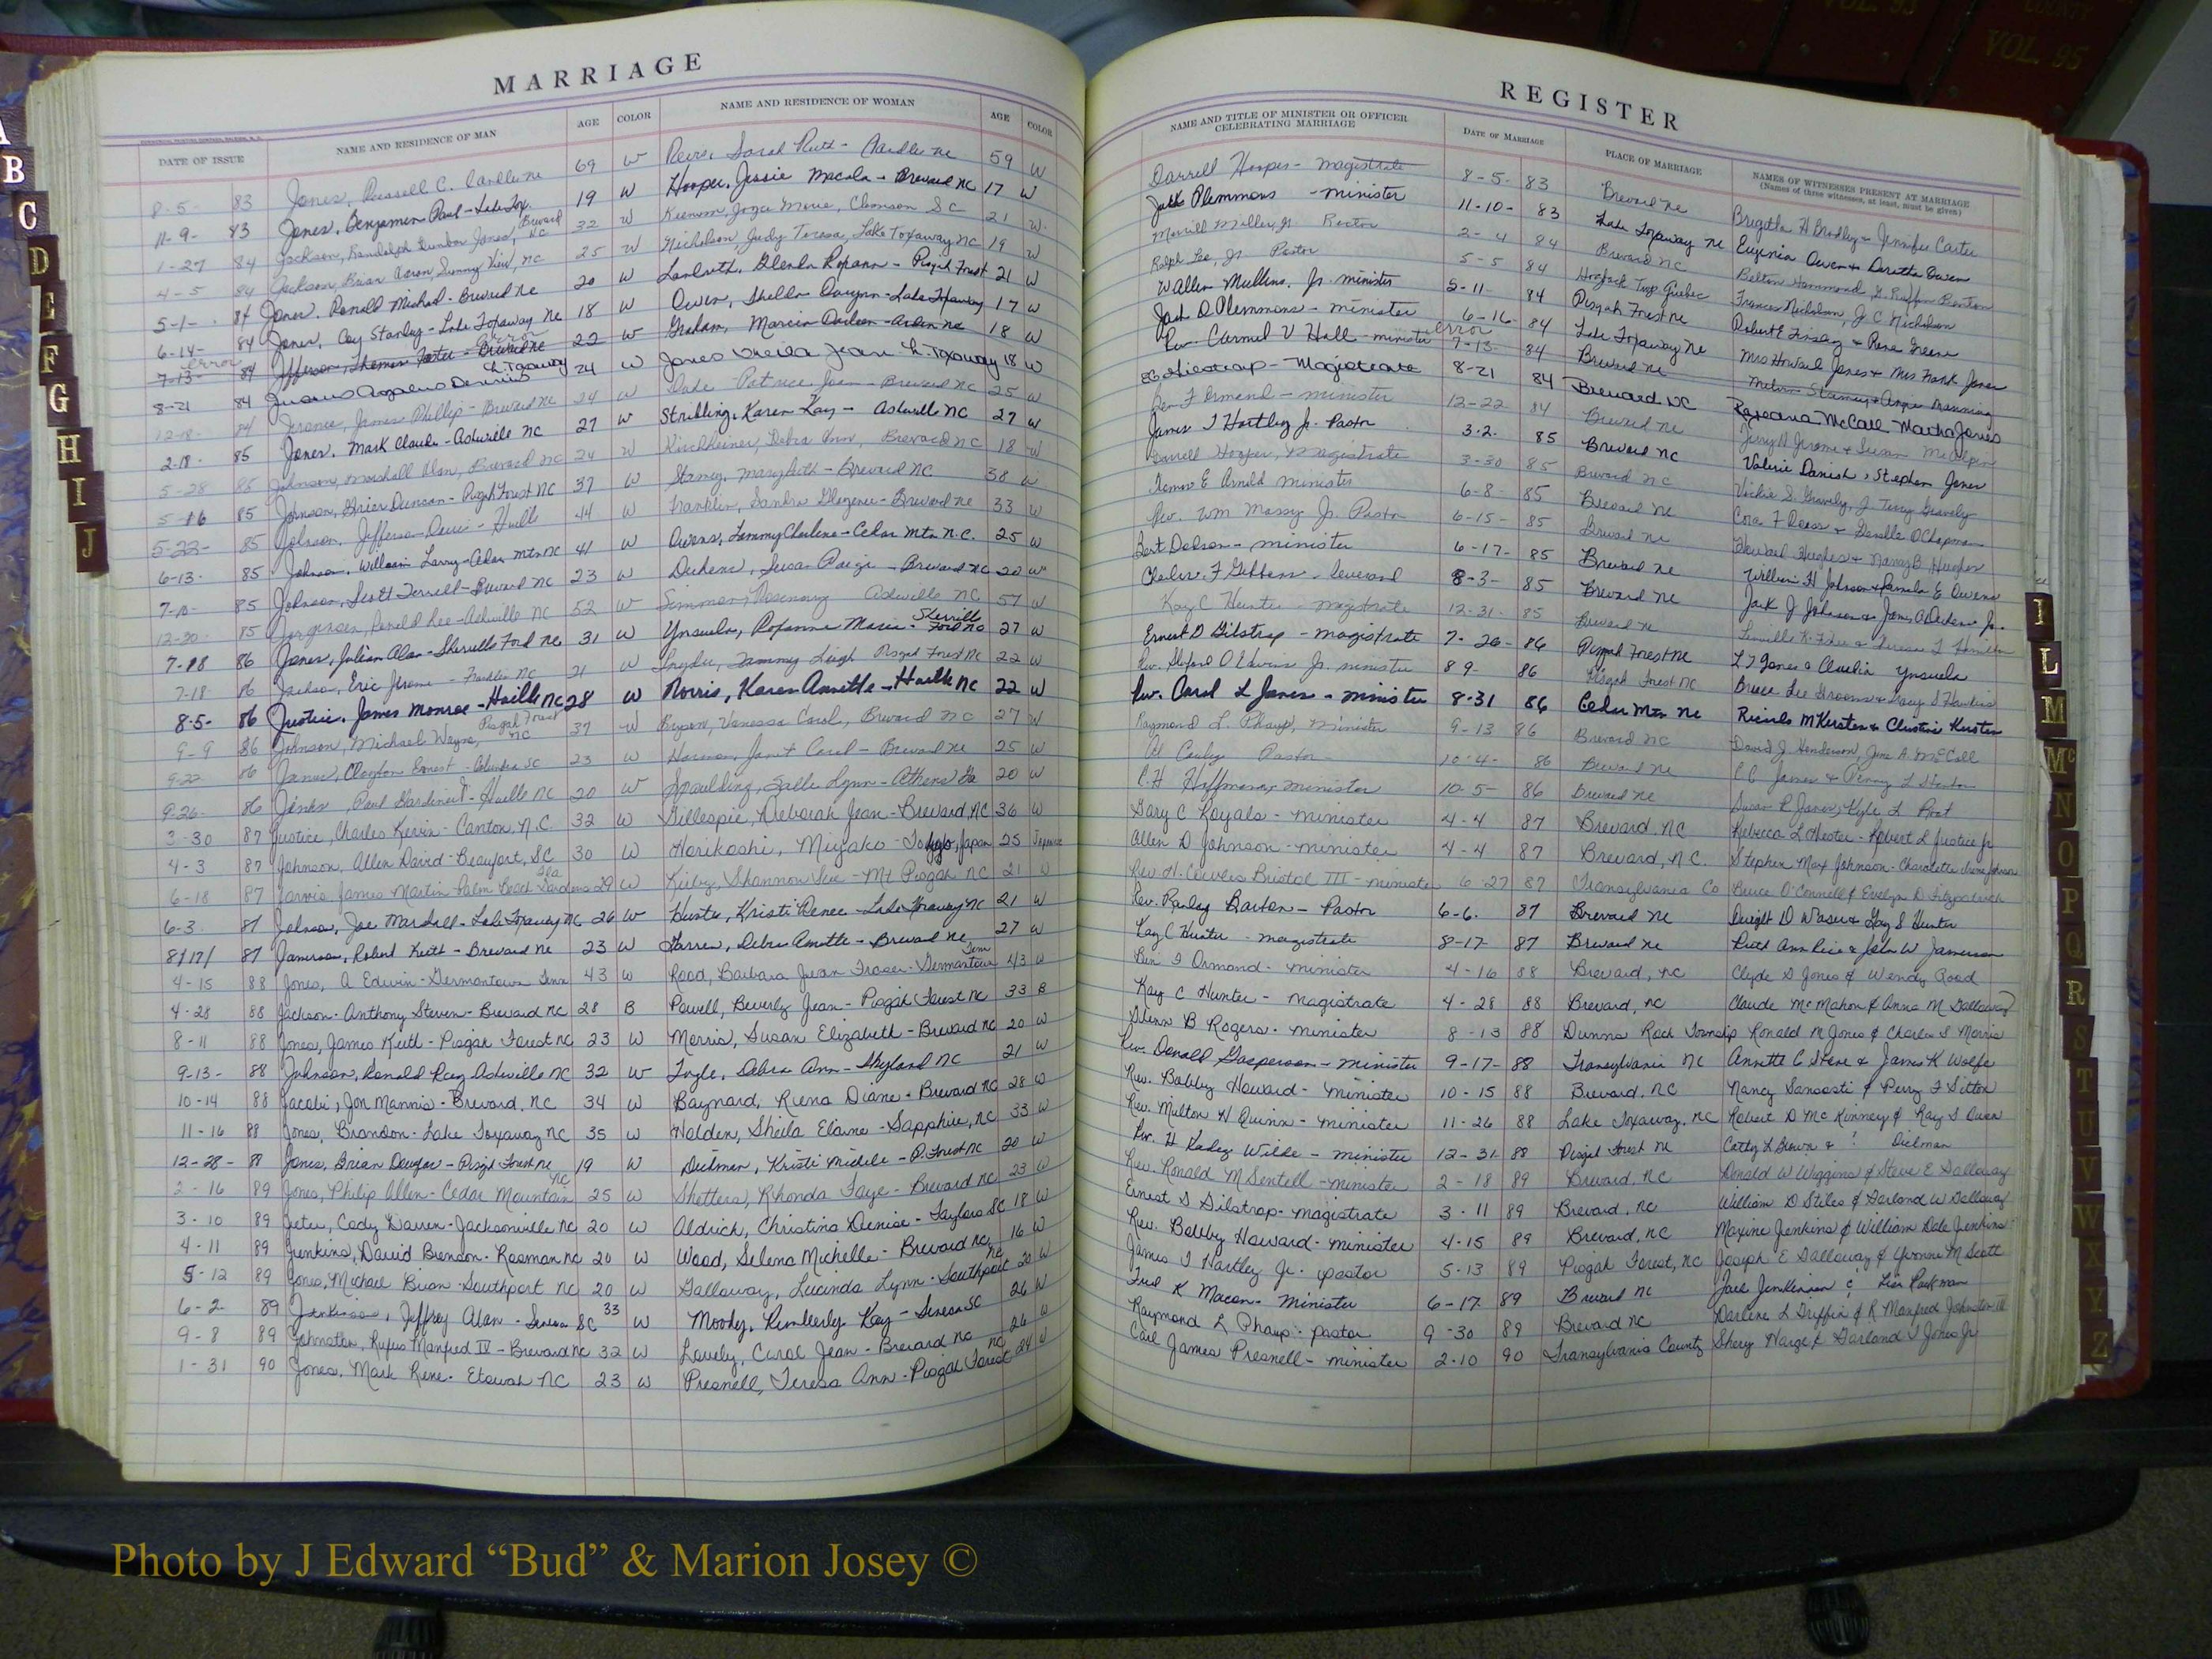 MARRIAGE
DATE OF ISSUE NAME AND RESIDENCE OF MAN AGE COLOR NAME AND RESIDENCE OF WOMAN AGE COLOR
8-5- 83 Jones, Russell C. 69 W Sarah Ruth - 59 W
11-9- 83 Jones, Benjamin Paul - Lake Tox. 19 W Hooper, Jessie - Brevard NC 17 W
1-27 84 Jackson, Randolph Jones, Brevard NC 32 W Marie, Clemson SC 21 W
4-5 84 Jackson, Brian Sunny View, NC 25 W Nicholson, Judy Teresa, Lake Toxaway NC 19 W
5-1- 84 Jones, Ronald Michael - Brevard NC 20 W Glenda - Pisgah Forest 21 W
6-14- 84 Jones, Coy Stanley - Lake Toxaway NC 18 W Owen, Shella - Lake Toxaway 17 W
error 7-13- 84 Jefferson, Thomas Foster - Brevard NC error 22 W Graham, Marcia Darleen - Arden NC 18 W
8-21 84 Dennis L. Toxaway 24 W Jones Sheila Jean L. Toxaway 18 W
12-18- 84 Jerome, James Phillip - Brevard NC 24 W - Brevard NC 25 W
2-18- 85 Jones, Mark Claude - Asheville NC 27 W Stribling, Karen Kay - Asheville NC 27 W
5-28 85 Johnson, Marshall Alan, Brevard NC 24 W Debra Ann, Brevard NC 18 W
5-16 85 Johnson, Grier Duncan - Pisgah Forest NC 37 W Stamey, Mary Beth - Brevard NC 38 W
5-22- 85 Johnson, Jefferson Davis - Hville 44 W Franklin, Sandra - Brevard NC 33 W
6-13- 85 Johnson, William Larry - Cedar Mtn NC 41 W Owens, Tammy Charlene - Cedar Mtn N.C. 25 W
7-10- 85 Johnson, Scott Terrell - Brevard NC 23 W Susan Paige - Brevard NC 20 W
12-30- 85 Jorgensen, Ronald Lee - Asheville NC 52 W Simmons, Rosemary Asheville NC 57 W
7-18 86 Jones, Julian Alan - Sherrills Ford NC 31 W Ynsuela, Roxanne Marie - Sherrills Ford NC 27 W
7-18 86 Jackson, Eric Jerome - Franklin NC 21 W Snyder, Tammy Leigh Pisgah Forest NC 22 W
8-5- 86 Justice, James Monroe - Hville NC 28 W Norris, Karen Annette - Hville NC 22 W
9-9 86 Johnson, Michael Wayne, Pisgah Forest NC 37 W Bryson, Vanessa Carol, Brevard NC 27 W
9-22 86 James, Clayton Ernest - Columbia SC 23 W Janet Carol - Brevard NC 25 W
9-26- 86 Paul - Hville NC 20 W Spaulding, Sallie Lynn - Athens Ga 20 W
3-30 87 Justice, Charles Kevin - Canton, N.C. 32 W Gillespie, Deborah Jean - Brevard, NC 36 W
4-3 87 Johnson, Allen David - Beaufort, SC 30 W Horikoshi, Miyako - Tokyo, Japan 25 Japanese
6-18 87 Jarvis, James Martin - Palm Beach Gardens Fla 29 W Shannon Sue - Mt Pisgah NC 21 W
6-3 87 Johnson, Joe Marshall - Lake Toxaway NC 26 W Hunter, Kristi Renee - Lake Toxaway NC 21 W
8/17/ 87 Jamerson, Robert Keith - Brevard NC 23 W Garren, Debra Annette - Brevard NC 27 W
4-15 88 Jones, A Edwin - Germantown Tenn 43 W Rood, Barbara Jean Fraser - Germantown Tenn 43 W
4-28 88 Jackson - Anthony Steven - Brevard NC 28 B Powell, Beverly Jean - Pisgah Forest NC 33 B
8-11 88 Jones, James Keith - Pisgah Forest NC 23 W Morris, Susan Elizabeth - Brevard NC 20 W
9-13- 88 Johnson, Ronald Ray Asheville NC 32 W Debra Ann - Skyland NC 21 W
10-14 88 Jacobi, Jon Mannis - Brevard, NC 34 W Baynard, Rena Diane - Brevard NC 28 W
11-16 88 Jones, Brandon - Lake Toxaway NC 35 W Holden, Sheila Elaine - Sapphire, NC 33 W
12-28- 88 Jones, Brian Douglas - Pisgah Forest NC 19 W Dielman, Kristi Michele - P. Forest NC 20 W
2-16 89 Jones, Philip Allen - Cedar Mountain NC 25 W Shetters, Rhonda Faye - Brevard NC 23 W
3-10 89 Jeter, Cody Daven - Jacksonville NC 20 W Aldrich, Christina Denise - Taylors SC 18 W
4-11 89 Jenkins, David Branson - Rosman NC 20 W Wood, Selena Michelle - Brevard NC 16 W
5-12 89 Jones, Michael Brian - Southport NC 20 W Galloway, Lucinda Lynn - Southport NC 20 W
6-2 89 Jenkinson, Jeffrey Alan - Seneca SC 33 W Moody, Kimberly Kay - Seneca SC 26 W
9-8 89 Johnston, Rufus Manfred IV - Brevard NC 32 W Lovely, Carol Jean - Brevard NC 26 W
1-31 90 Jones, Mark Rene - Etowah NC 23 W Presnell, Teresa Ann - Pisgah Forest NC 24 W
REGISTER
NAME AND TITLE OF MINISTER OR OFFICER CELEBRATING MARRIAGE DATE OF MARRIAGE PLACE OF MARRIAGE NAMES OF WITNESSES PRESENT AT MARRIAGE
(Names of three witnesses, at least, must be given)
Darrell Hooper - Magistrate 8-5- 83 Brevard NC Brigitta H Bradley & Jennifer Carter
Jack Plemmons - Minister 11-10- 83 Lake Toxaway NC Eugenia Owen & Doretha Owen
Merrill Miller, Jr Rector 2-4 84 Brevard NC Belton Hammond, G. Ruffin Benton
Ralph Lee, Jr Pastor 5-5 84 Hogback Twp Quebec Frances Nicholson, J C Nicholson
W Allen Mullins, Jr. Minister 5-11- 84 Pisgah Forest NC Robert E Finley & Rena Greene
Jack D Plemmons - minister 6-16- 84 Lake Toxaway NC Mrs Howard Jones & Mrs Frank Jones
Rev. Carmel V Hall - minister error 7-13- 84 Brevard NC Stamey & Manning
EG Gilestrap - Magistrate 8-21 84 Brevard NC Roxana McCall Martha Jones
Ben F Ormand - minister 12-22 84 Brevard NC Jerry N Jerome & Susan McAlpin
James T Hartley Jr. Pastor 3-2- 85 Brevard NC Valerie Danish, Stephen Jones
Darrell Hooper, Magistrate 3-30 85 Brevard NC Vickie D. Gravely, J Terry Gravely
E Arnold minister 6-8- 85 Brevard NC Cora F Deas & O Chapman
Rev. Wm Massy Jr. Pastor 6-15- 85 Brevard NC Howard Hughes & Nancy B Hughes
Bert Dodson - minister 6-17- 85 Brevard NC William H Johnson & Pamela E Owens
Charles F Gibbon - Reverend 8-3- 85 Brevard NC Jack J Johnson & James A Jr.
Kay C Hunter - magistrate 12-31- 85 Brevard NC
Ernest D Gilstrap - magistrate 7-26- 86 Pisgah Forest NC L T Jones & Claudia Ynsuela
Rev. Jr. minister 8 9- 86 Pisgah Forest NC Bruce Lee Grooms & Tracy S Hawkins
Rev. Carol L Jones - minister 8-31 86 Cedar Mtn NC Ricardo M Kersten & Christine Kersten
Raymond L. Phaup, Minister 9-13 86 Brevard NC David J. Henderson, June A. McCall
Al Pastor 10-4- 86 Brevard NC C C James & Penny L
C. H Hoffman, minister 10-5- 86 Brevard NC Susan P. Kyle L Post
Gary C Royals - minister 4-4 87 Brevard, NC Rebecca L Hester - Robert L Justice Jr
Allen D Johnson - minister 4-4 87 Brevard, N.C. Stephen Max Johnson - Charolette Irene Johnson
Rev H. Cowles Bristol III - minister 6-27 87 Transylvania Co Bruce O'Connell & Evelyn D Fitzpatrick
Rev. Ranley Barton - Pastor 6-6- 87 Brevard NC Dwight D & Gay S Hunter
Kay C Hunter - magistrate 8-17- 87 Brevard NC Ruth Ann Rice & John W Jamerson
Ben F Ormond - minister 4-16 88 Brevard, NC Clyde D Jones & Wendy Rood
Kay C Hunter - Magistrate 4-28 88 Brevard, NC Claude McMahon & Anna M Galloway
Glenn B Rogers - minister 8-13 88 Dunns Rock Township Ronald M Jones & Charles S Morris
Rev. Donald Gasperson - minister 9-17- 88 Transylvania NC Annette C & James K Wolfe
Rev. Bobby Howard - minister 10-15 88 Brevard, NC Nancy Sansosti & Perry F Sitton
Rev. Milton H Quinn - minister 11-26 88 Lake Toxaway, NC Robert D McKinney & Kay S Owen
Rev. H Wilde - minister 12-31 88 Pisgah Forest NC Cathy L Brown & ! Dielman
Rev. Ronald M Sentell - minister 2-18 89 Brevard, NC Donald W Wiggins & Steve E Galloway
Ernest D Gilstrap - magistrate 3-11 89 Brevard, NC William D Stiles & Garland W Galloway
Rev. Bobby Howard - minister 4-15 89 Brevard, NC Maxine Jenkins & William Dale Jenkins
James T Hartley Jr. - pastor 5-13 89 Pisgah Forest, NC Joseph E Galloway & Yvonne M Scott
Fred K Macon - Minister 6-17 89 Brevard NC Jack Jenkinson & Lisa Parkman
Raymond L Phaup - pastor 9-30 89 Brevard NC Darlene L Griffin & R Manfred Johnston III
Carl James Presnell - minister 2-10 90 Transylvania County Sherry & Garland T Jones Jr
A
B
C
D
E
F
G
H
I
J
L
M
Mc
N
O
P
Q
R
S
T
U
V
W
X
Y
Z
VOL. 93
COUNTY
VOL. 95
Photo by J Edward “Bud” & Marion Josey ©